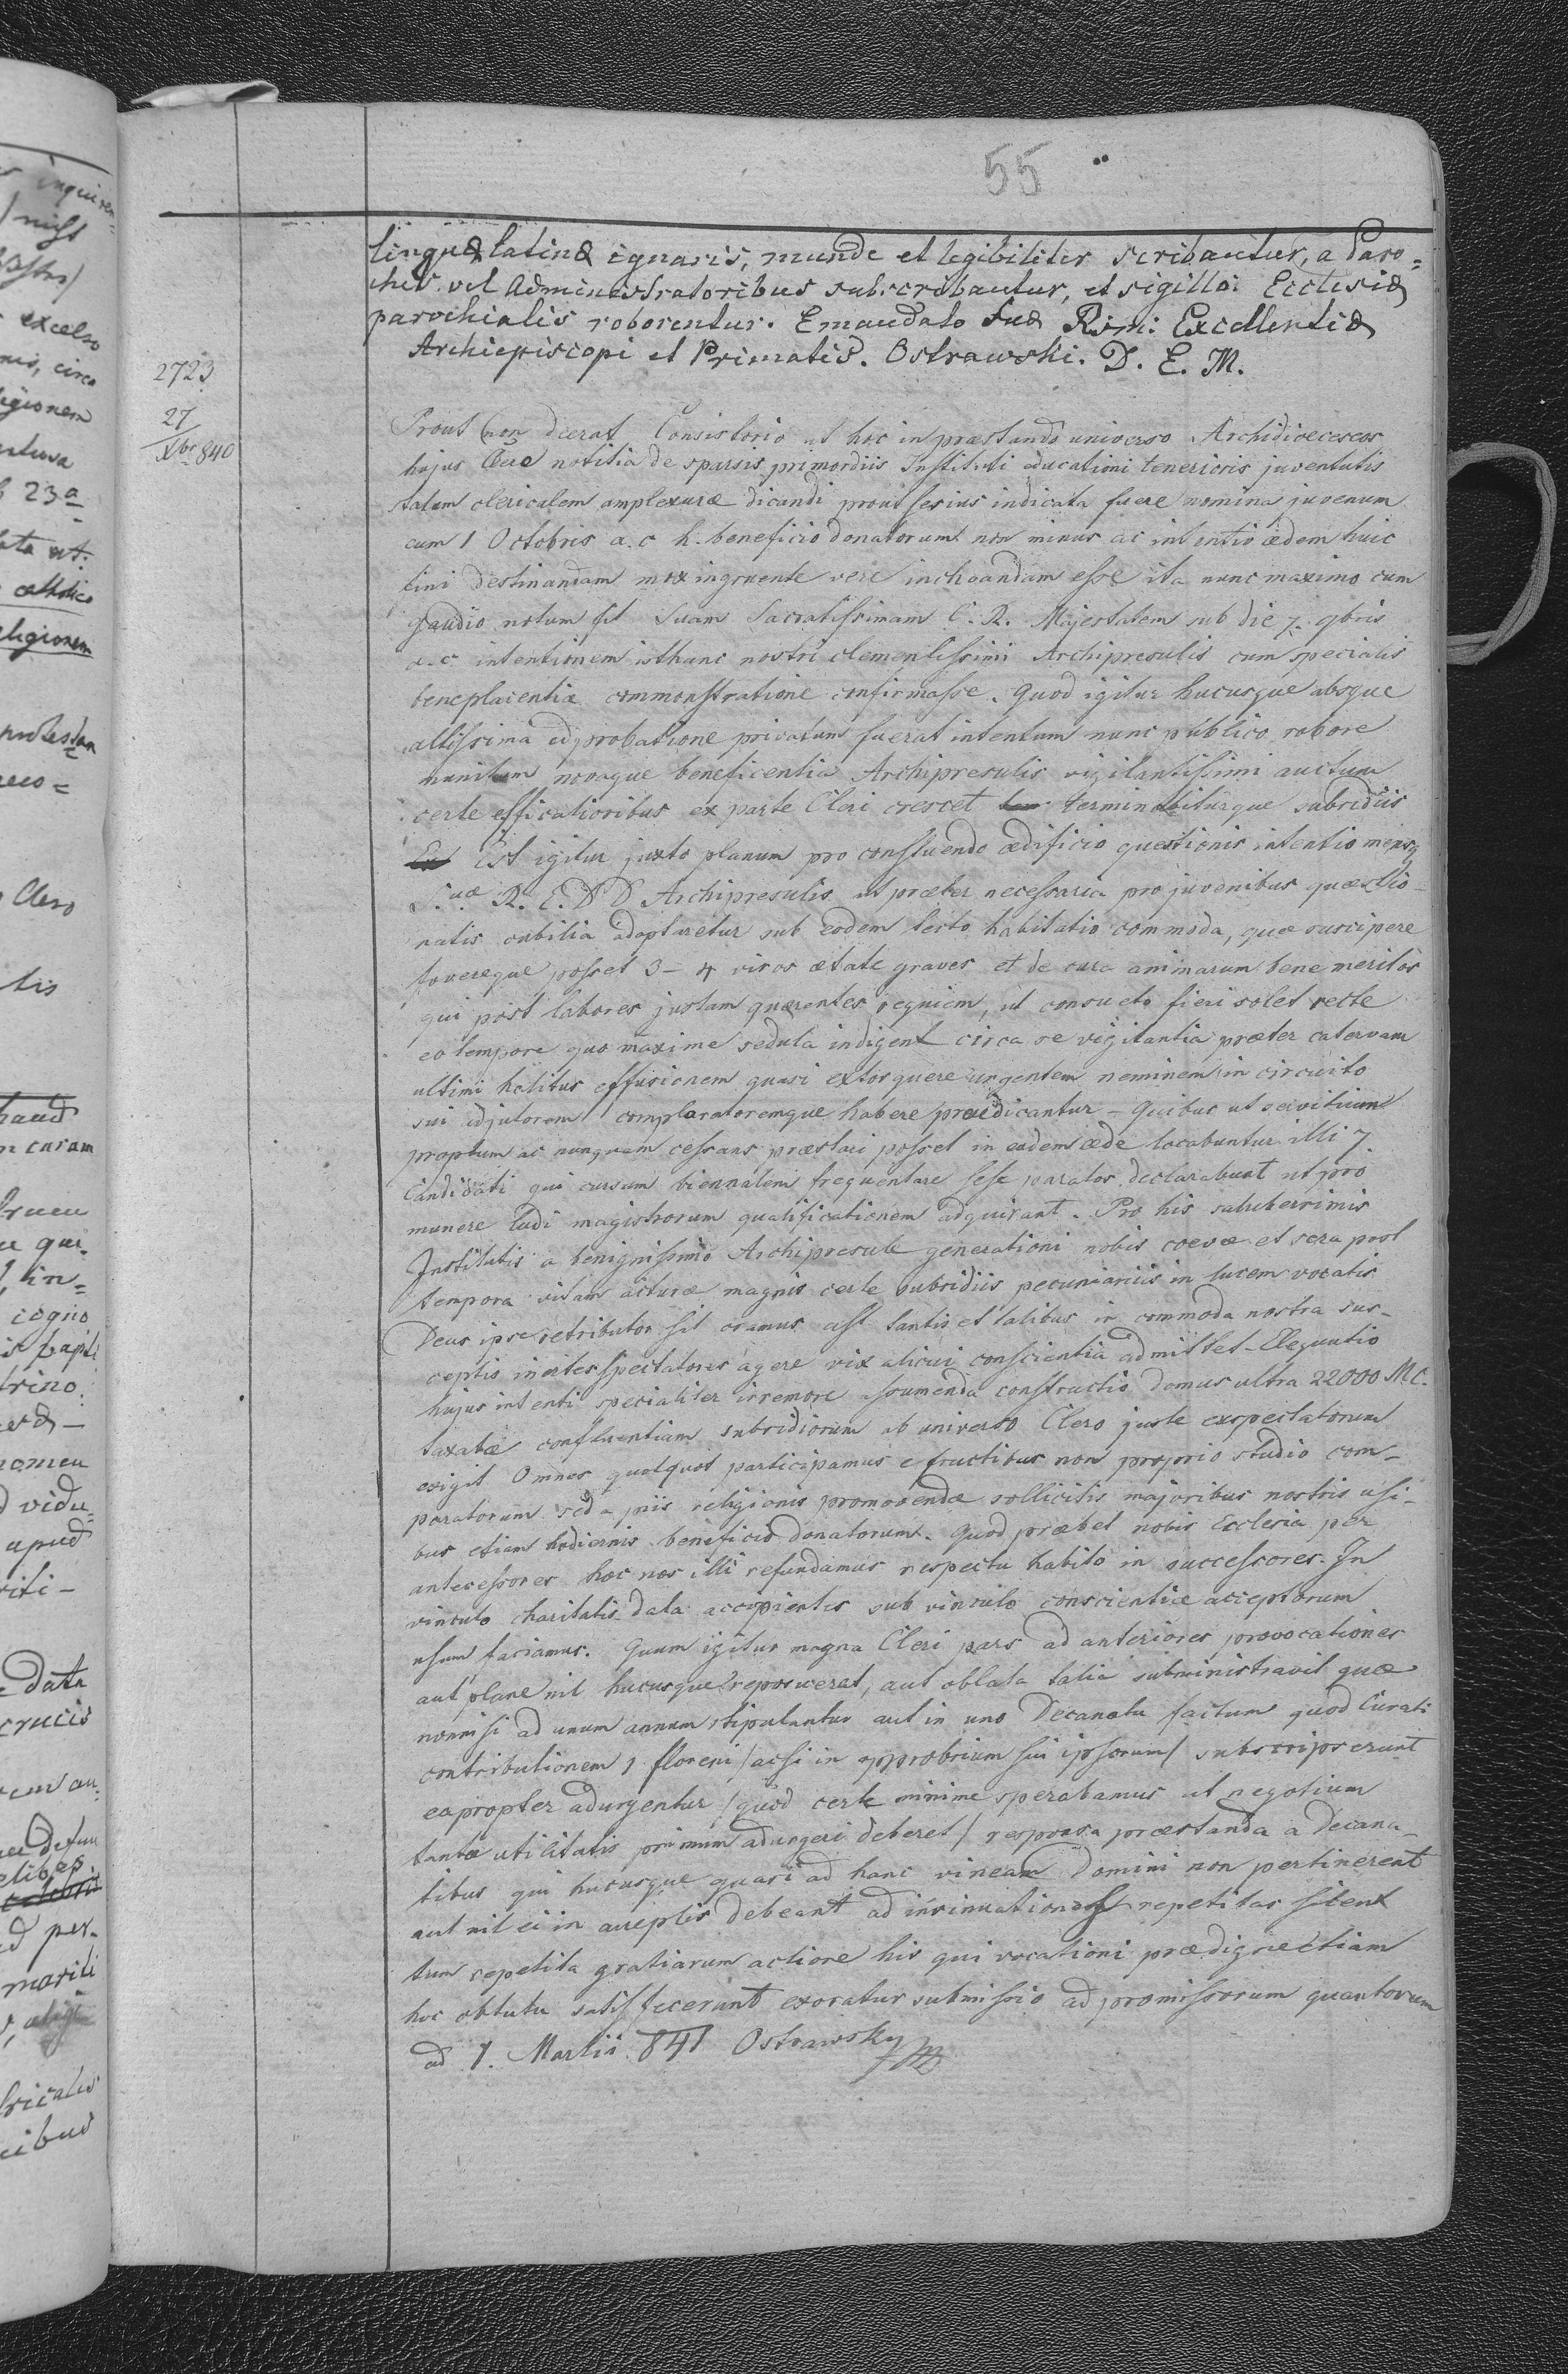 55
linguæ latinæ ignaris, munde et legibiliter scribantur, a Paro=
chis vel Administratoribus subscribantur, et sigillo Ecclesiæ
parochialis roborentur. E mandato Suæ Rssmi: Excellentiæ
Archiepiscopi et Primatis. Ostrawski. D. E. M.
2723
27
Xbr 840
Prout non deerat Consistorio ut hoc in præstando universo Archidioeceseos
hujus Clero notitia de sparsis primordiis Instituti educationi tenerioris juventutis
statum clericalem amplexuræ dicandi prout serius indicata fuere nomina juvenum
cum 1 Octobris a. c h. beneficio donatorum non minus ac intentio ædem huic
fini destinandam mox ingruente vere inchoandam esse ita nunc maximo cum
gaudio notum fit Suam Sacratissimam C. R. Majestatem sub die 7. 9bris
a. c. intentionem isthanc nostri clementissimi Archipresulis cum specialis
beneplacentiæ commonstratione confirmasse. Quod igitur hucusque absque
altissima adprobatione privatum fuerat intentum nunc publico robore
munitum novaque beneficentia Archipresulis vigilantissimi auctum
certe efficatioribus ex parte Cleri crescet terminabiturque subsidiis
Est igitur juxto planum pro constuendo ædificio questionis intentio mensq
Suæ R. E. D D Archipresulis ut præter necessaria pro juvenibus quæstio-
natis cubilia adaptaretur sub eodem tecto habitatio commoda, quæ suscipere
fovereque posset 3 - 4 viros ætate graves et de cura animarum bene meritos
qui post labores justam quærentes requiem, ut consueto fieri solet recte
eo tempore quo maxime sedula indigent circa se vigilantia præter catervam
ultimi halitus effusionem quasi extorquere urgentem neminem in circuito
sui adjutorem comploratoremque habere prædicantur - Quibus ut servitium
promptum ac nunquam cessans præstari posset in eadem æde locabuntur illi 7
Candidati qui cursum biennalem frequentare sese paratos declarabunt ut pro
munere ludi magistrorum qualificationem adquirant. Pro his saluberrimis
Institutis a benignissimo Archipresule generationi nobis coevæ et sera post
tempora vitam acturæ magnis certe subsidiis pecuniariis in lucem vocatis
Deus ipse retributor sit oramus ast tantis et talibus in commoda nostra sus-
ceptis inertes spectatores agere vix alicui conscientia admittet - Elequutio
hujus intenti specialiter irremore assumenda constructio domus ultra 22000 MC.
taxatæ confluentiam subsidiorum ab universo Clero juste exspectatorum
exigit Omnes quotquot participamus e fructibus non proprio studio com-
paratorum sed a piis religionis promovendæ sollicitis majoribus nostris usi-
bus etiam hodiernis beneficio donatorum. Quod præbet nobis Ecclesia per
antecessores hoc nos illi refundamus respectu habito in successores. In
vinculo charitatis data accipientes sub vinculo conscientiæ acceptorum
usum faciamus. Quum igitur magna Cleri pars ad anteriores provocationes
aut plane nil hucusque reposuerat, aut oblata talia subministravit quæ
nonnisi ad unum annum stipulantur aut in uno Decanatu factum quod Curati
contributionem 1 floreni / acsi in opprobrium sui ipsorum / subscripserunt
eapropter adurgentur / quod certe minime sperabamus ut negotium
tantæ utilitatis primum adurgeri deberet / responsa præstanda a Decana-
tibus qui hucusque quasi ad hanc vineam Domini non pertinerent
aut nil ei in acceptis debeant ad insinuationes repetitas silent
tum repetita gratiarum actione his qui vocationi prædignæ etiam
hoc obtutu satisfecerunt exoratur submissio ad promissorum quantorum
ad 1. Martii 841 Ostrawsky